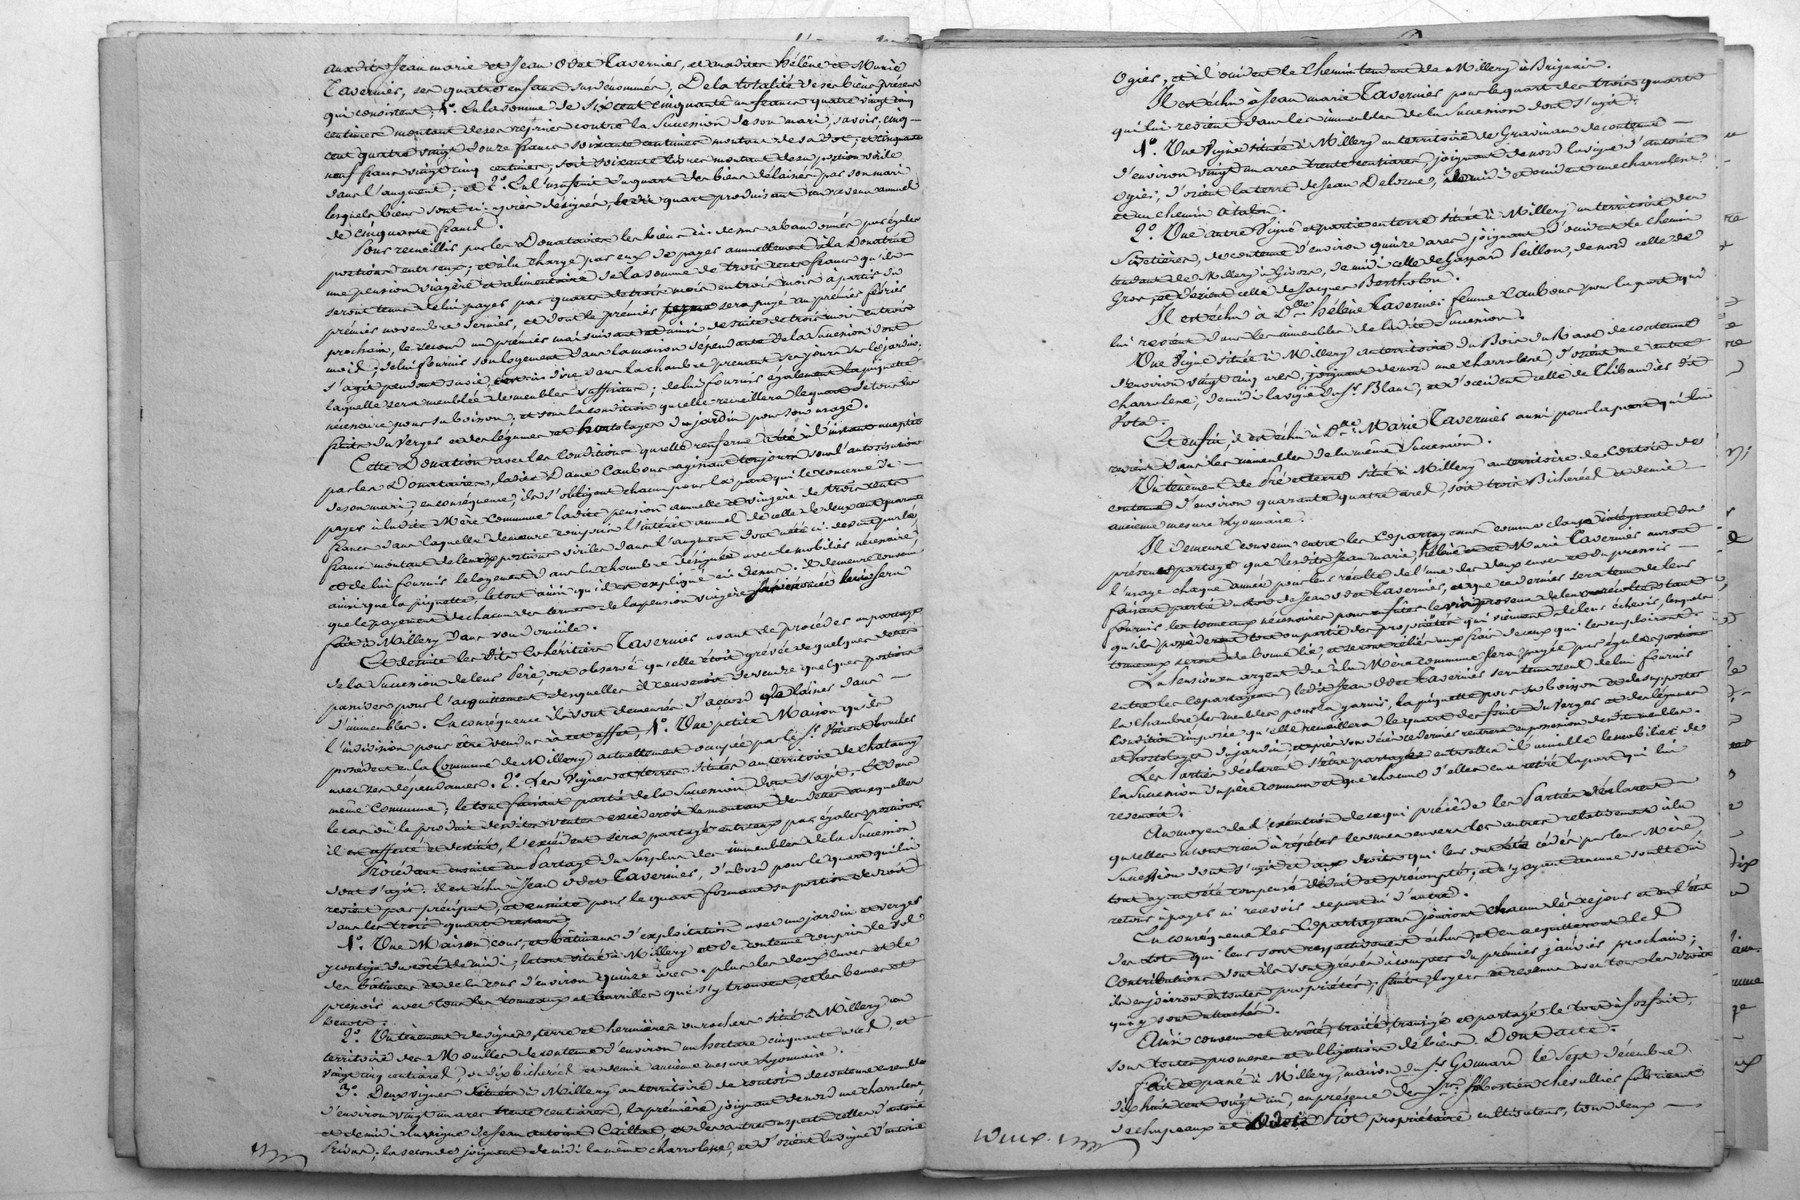 auxdits Jean marie et Jean Odet Tavernier, et auxdites hélène et Marie
Tavernier, ses quatre enfans susnommés, De la totalité de ses biens présens
qui consistent, 1o. En la somme de six cent cinquante un francs quatre vingt cinq
centimes montant de ses reprises contre la Succession de son mari, savoir, cinq
cent quatre vingt douze francs soixante centimes montant de sa dot, et cinquante
neuf francs vingt cinq centimes, soit soixante livres montant de sa portion virile
dans l'augment; et 2o. En l'usufruit du quart des biens délaissés par son mari
lesquels biens sont ci-après désignés, ledit quart produisant un revenu annuel
de cinquante francs.
Pour recueillir par les Donataires les biens ci-dessus abandonnés par égales
portions entr'eux; et à la charge par eux de payer annuellement à la Donatrice
une pension viagère et alimentaire de la somme de trois cents francs qu'ils
seront tenus de lui payer par quarts de trois mois en trois mois à partir du
premier novembre dernier, et dont le premier terme sera payé au premier février
prochain, le second au premier mai suivant et ainsi de suite de trois mois en trois
mois; de lui fournir son logement dans la maison dépendante de la Succession dont
s'agit pendant sa vie, c'est-à-dire dans la chambre prenant ses jours sur le jardin,
laquelle sera meublée de meubles suffisans; de lui fournir également la piquette
nécessaire pour sa boisson; et sous la condition qu'elle recueillera le quart de tous les
fruits du verger et des légumes et hortolages du jardin pour son usage.
Cette Donation avec les conditions qu'elle renferme a été à l'instant acceptée
par les Donataires, ladite Dame Caubous agissant toujours sous l'autorisation
de son mari; en conséquence, ils s'obligent chacun pour la part qui le concerne de
payer à ladite Mère commune ladite pension annuelle et viagère de trois cents
francs dans laquelle demeure compris l'intérêt annuel de celle de deux cent quarante
francs montant de leurs portions viriles dans l'augment dont a été ci-devant parlé,
et de lui fournir le logement dans la chambre désignée avec le mobilier nécessaire,
ainsi que la piquette, le tout ainsi qu'il est expliqué ci-dessus. il demeure convenu
que le payement de chacun des termes de la pension viagère sera
fait à Millery dans son domicile.
Et de suite les dits Cohéritiers Tavernier avant de procéder au partage
de la Succession de leur Père, ont observé qu'elle étoit grévée de quelques dettes
passives pour l'acquittement desquelles il convenoit de vendre quelques portions
d'immeubles. En conséquence ils sont demeurés d'accord de laisser dans
l'indivision pour être vendus à cet effet, 1o. Une petite Maison qu'ils
possèdent en la Commune de Millery actuellement occupée par le Sr. Vincent
avec ses dépendances. 2o. Les Vignes et terres situées au territoire de chatanay
même commune, le tout faisant partie de la Succession dont s'agit. Et dans
le cas où le produit desdites ventes excéderoit le montant des dettes auxquelles
il est affecté et destiné, l'excédent sera partagé entr'eux par égales portions.
Procédant ensuite au Partage du surplus des immeubles de la Succession
dont s'agit: il est échu à Jean Odet Tavernier, d'abord pour le quart qui lui
revient par préciput, et ensuite pour le quart formant sa portion de droit
dans les trois quarts restans,
1o. Une Maison, cour, et bâtimens d'exploitation avec un jardin et verger
y contigu du côté de midi; le tout situé à Millery et de contenue compris le sol
des bâtimens et de la cour d'environ quinze ares: plus les deux cuves et le
pressoir avec tous les tonneaux et barrilles qui s'y trouvent, et les bennes et
bennots.
2o. Un tènement de vignes, terre et hermières ou rochers situé à Millery au
territoire des Mouilles de contenue d'environ un hectare cinquante ares, et
vingt cinq centiares, ou dix bicherées et demie ancienne mesure Lyonnaise.
3o. Deux vignes situées à Millery au territoire de contoir de contenue ensemble
d'environ vingt un ares trente centiares, la première, joignant de nord une charrolène,
et de midi la vigne de Jean antoine Caillat et des autres aspects celles d'antoine
; la seconde joignant de midi la même charrolène, et d'orient la vigne d'antoine
Ogier, et d'occident le chemin tendant de Millery à Brignais.
Il est échu à Jean marie Tavernier pour le quart des trois quarts
qui lui revient dans les immeubles de la Succession dont s'agit:
1o. Une Vigne située à Millery au territoire de Gravinan de contenue
d'environ vingt un ares trente centiares, joignant de nord la vigne d'antoine
Ogier; d'orient la terre de Jean Delorme, de midi et occident une charrolène
et un chemin à talon.
2o. Une autre Vigne et partie en terre située à Millery au territoire des
, de contenue d'environ quinze ares joignant d'occident le chemin
tendant de Millery à Givors, de midi celle de Gaspar Peillon, de nord celle de
Gros, et d'orient celle de Jacques Bertholon.
Il est échu à De. hélène Tavernier femme Caubous pour la part qui
lui revient dans les immeubles de ladite Succession,
Une Vigne située à Millery au territoire du Bois du Mare de contenue
d'environ vingt cinq ares, joignant de nord une charrolène, d'orient une autre
charrolène, de midi la vigne du Sr. Blanc, et d'occident celle de Thibaudier dit
Pota.
Et enfin, il est échu à Dlle. Marie Tavernier aussi pour la part qui lui
revient dans les immeubles de la même Succession.
Un tènement de Pré et terre situé à Millery au territoire de Contoir de
contenue d'environ quarante quatre ares, soit trois Bicherées et demie
ancienne mesure Lyonnaise.
Il demeure convenu entre les Copartageans comme clause intégrante du
présent partage que lesdits Jean marie, hélène et Marie Tavernier auront
l'usage chaque année pour leur récolte de l'une des deux cuves et du pressoir
faisant partie du lot de Jean Odet Tavernier, et que ce dernier sera tenu de leur
fournir les tonneaux nécessaires pour le vin provenu de leurs récoltes tant
qu'ils posséderont tout ou partie des propriétés qui viennent de leur échoir, lesquels
tonneaux seront de bonne lie, et seront reliés aux frais de ceux qui les emploiront.
La Pension en argent due à la Mère commune sera payée par égales portions
entre les Copartageans; ledit Jean Odet Tavernier sera tenu seul de lui fournir
la chambre, les meubles pour la garnir, la piquette pour sa boisson et de supporter
la condition imposée qu'elle recueillera le quart des fruits du verger et des légumes
et hortolages du jardin, et après son décès ce dernier rentrera en possession desdits meubles.
Les Parties déclarent s'être partagées entr'elles à l'amiable le mobilier de
la Succession du père commun et que chacune d'elles en a retiré la part qui lui
revenoit.
Au moyen de l'exécution de ce qui précède les Parties déclarent
qu'elles n'ont rien à répéter les unes envers les autres relativement à la
Succession dont s'agit et aux droits qui leur ont été cédés par leur Mère,
tout ayant été compensé déduit et précompté; et n'y ayant aucune soulte ni
retour à payer ni recevoir de part ni d'autre.
En conséquence les Copartageans jouiront chacun dès ce jour et en l'état
des lots qui leur sont respectivement échus, et en acquitteront les
Contributions dont ils sont grévés à compter du premier janvier prochain;
ils en jouiront en toutes propriétés, fruits, loyers et revenus avec tous les droits
qui y sont attachés.
Ainsi convenu et arrêté, traité, transigé et partagé le tout à forfait,
sous toutes promesses et obligations de biens. Dont acte.
Fait et passé à Millery, maison du Sr. Goimard, le Sept décembre
dix huit cent vingt un, en présence de Srs. Sébastien chevallier fabricant
de chapeaux et Odet Piot propriétaire cultivateur, tous deux